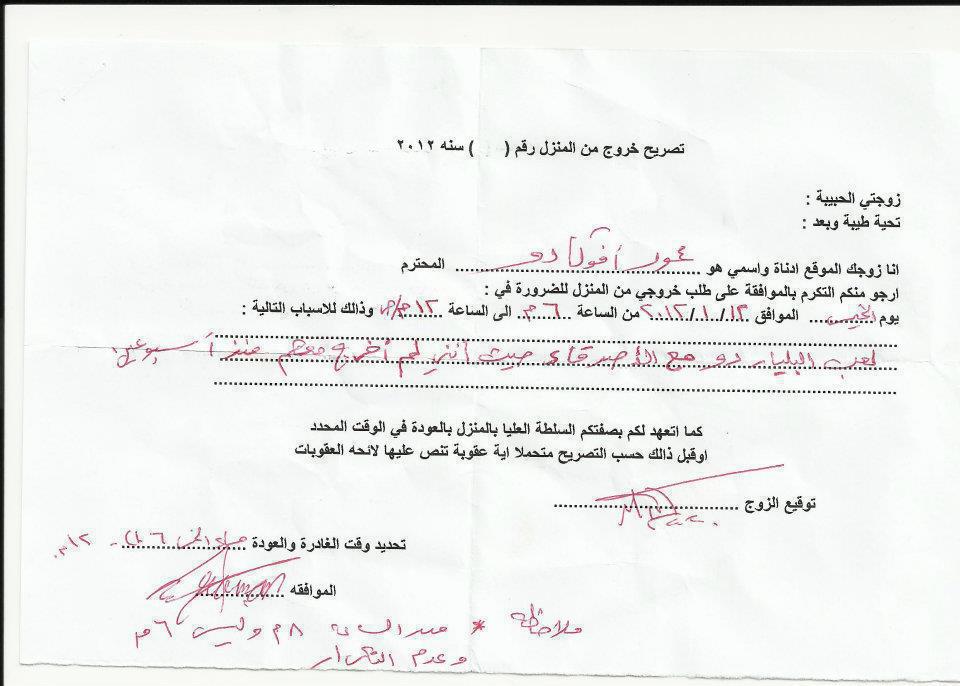 تصريح خروج من المنزل رقم (     ) سنه ٢٠١٢
زوجتي الحبيبة :
تحية طيبة وبعد :
انا زوجك الموقع ادناة واسمي هو ........ المحترم
ارجو منكم التكرم بالموافقة على طلب خروجي من المنزل للضرورة في :
يوم الخميس الموافق ١٢/١/٢٠١٢ من الساعة ٦ م الى الساعة ١٢ وذلك للاسباب التالية :
لعب البلياردو مع الأصدقاء حيث أنني لم أخرج معهم منذ أسبوعين
كما اتعهد لكم بصفتكم السلطة العليا بالمنزل بالعودة في الوقت المحدد
اوقبل ذالك حسب التصريح متحملا اية عقوبة تنص عليها لائحه العقوبات
توقيع الزوج
تحديد وقت الغادرة والعودة ١٢
الموافقه
ملاحظة * من الساعة ٨ م وليس ٦ م
وعدم التكرار